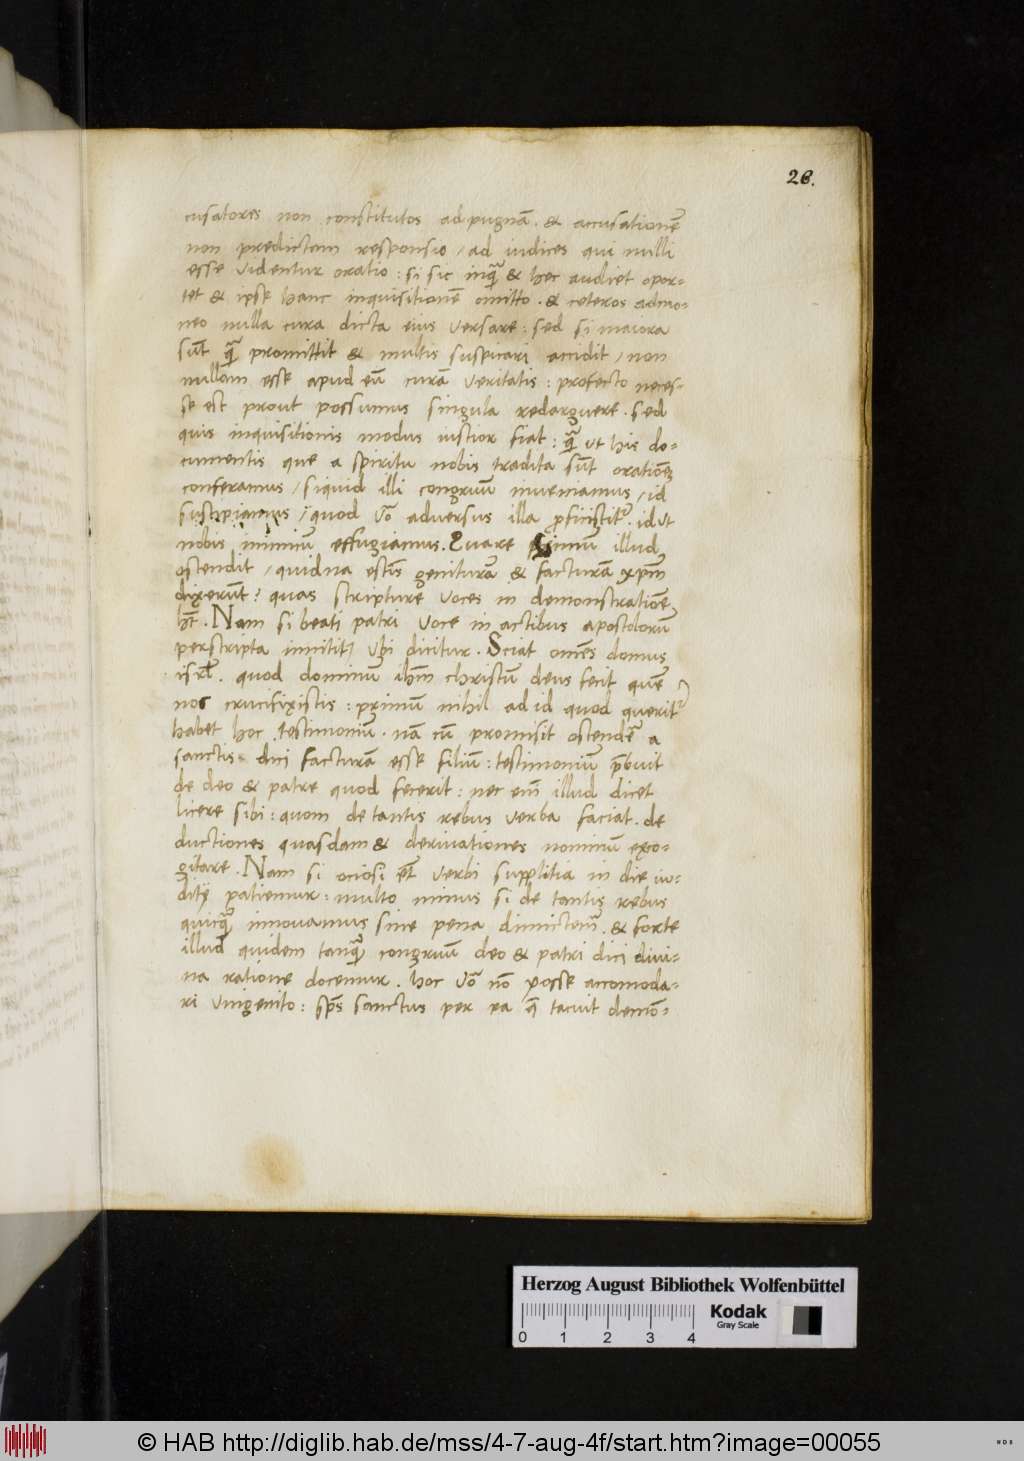 26.
cusatores non constitutos ad pugnā. & accusationē
non predictam responsio / ad iudices qui nulli
esse videntur oratio : si sic inquā & hec audiet opor-
tet & ipse hanc inquisitionē omitto . & ceteros admo-
neo nulla cura dicta eius versare : sed si maiora
sūt quā promittit & multis suspicari accidit / non
nullam esse apud eū curā veritatis : profecto neces-
se est prout possumus singula redarguere . sed
quis inquisitionis modus iustior fiat : quā ut his do-
cumentis que a spiritu nobis tradita sūt orationē
conferamus / siquid illi congruū inveniamus / id
suscipiamus / quod vō adversus illa proficiscitʳ . id ut
nobis inimicū effugiamus . Quare primū illud
ostendit / quidna estīs geniturā & facturā xpm̄
dixerūt? quas scripture voces in demonstrationē
hn̄t . Nam si beati patri voce in actibus apostolorū
perscripta innititʳ vbi dicitur . Sciat om̄es domus
isrl̄ . quod dominum ihm̄ christū deus fecit quē
nos crucifixistis : primū nihil ad id quod queritʳ
habet hoc testimoniū . nā cū promisit ostendē a
sanctis dici facturā esse filiū : testimoniū prebuit
de deo & patre quod fecerit : nec em̄ illud dicet
licere sibi : quom de tantis rebus verba faciat . de
ductiones quasdam & derivationes nominū exco-
gitare . Nam si ociosi et̄ verbi supplitia in die iu-
ditij patiemur : multo minus si de tantis rebus
quicquā innovamus sine pena dimictemʳ . & forte
illud quidem tanquā congruū deo & patri dici divi-
na ratione docemur . hoc vō nō posse accomoda-
ri vnigenito : sps̄ sanctus per ea quē tacuit demō-
Herzog August Bibliothek Wolfenbüttel
0 1 2 3 4
Kodak
Gray Scale
© HAB http://diglib.hab.de/mss/4-7-aug-4f/start.htm?image=00055